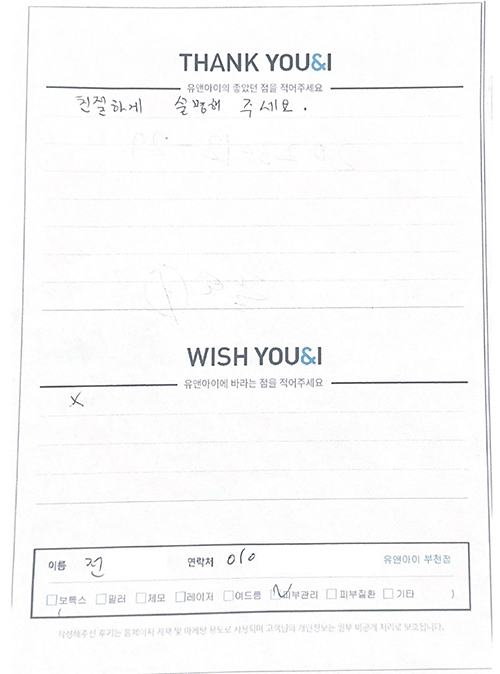 THANK YOU&I
유앤아이의 좋았던 점을 적어주세요
친절하게 설명해 주세요.
WISH YOU&I
유앤아이에 바라는 점을 적어주세요
X
이름 전 연락처 010 유앤아이 부천점
보톡스 필러 제모 레이저 여드름 피부관리 피부질환 기타 )
작성해주신 후기는 홈페이지 게재 및 마케팅 용도로 사용되며 고객님의 개인정보는 일부 비공개 처리로 보호됩니다.